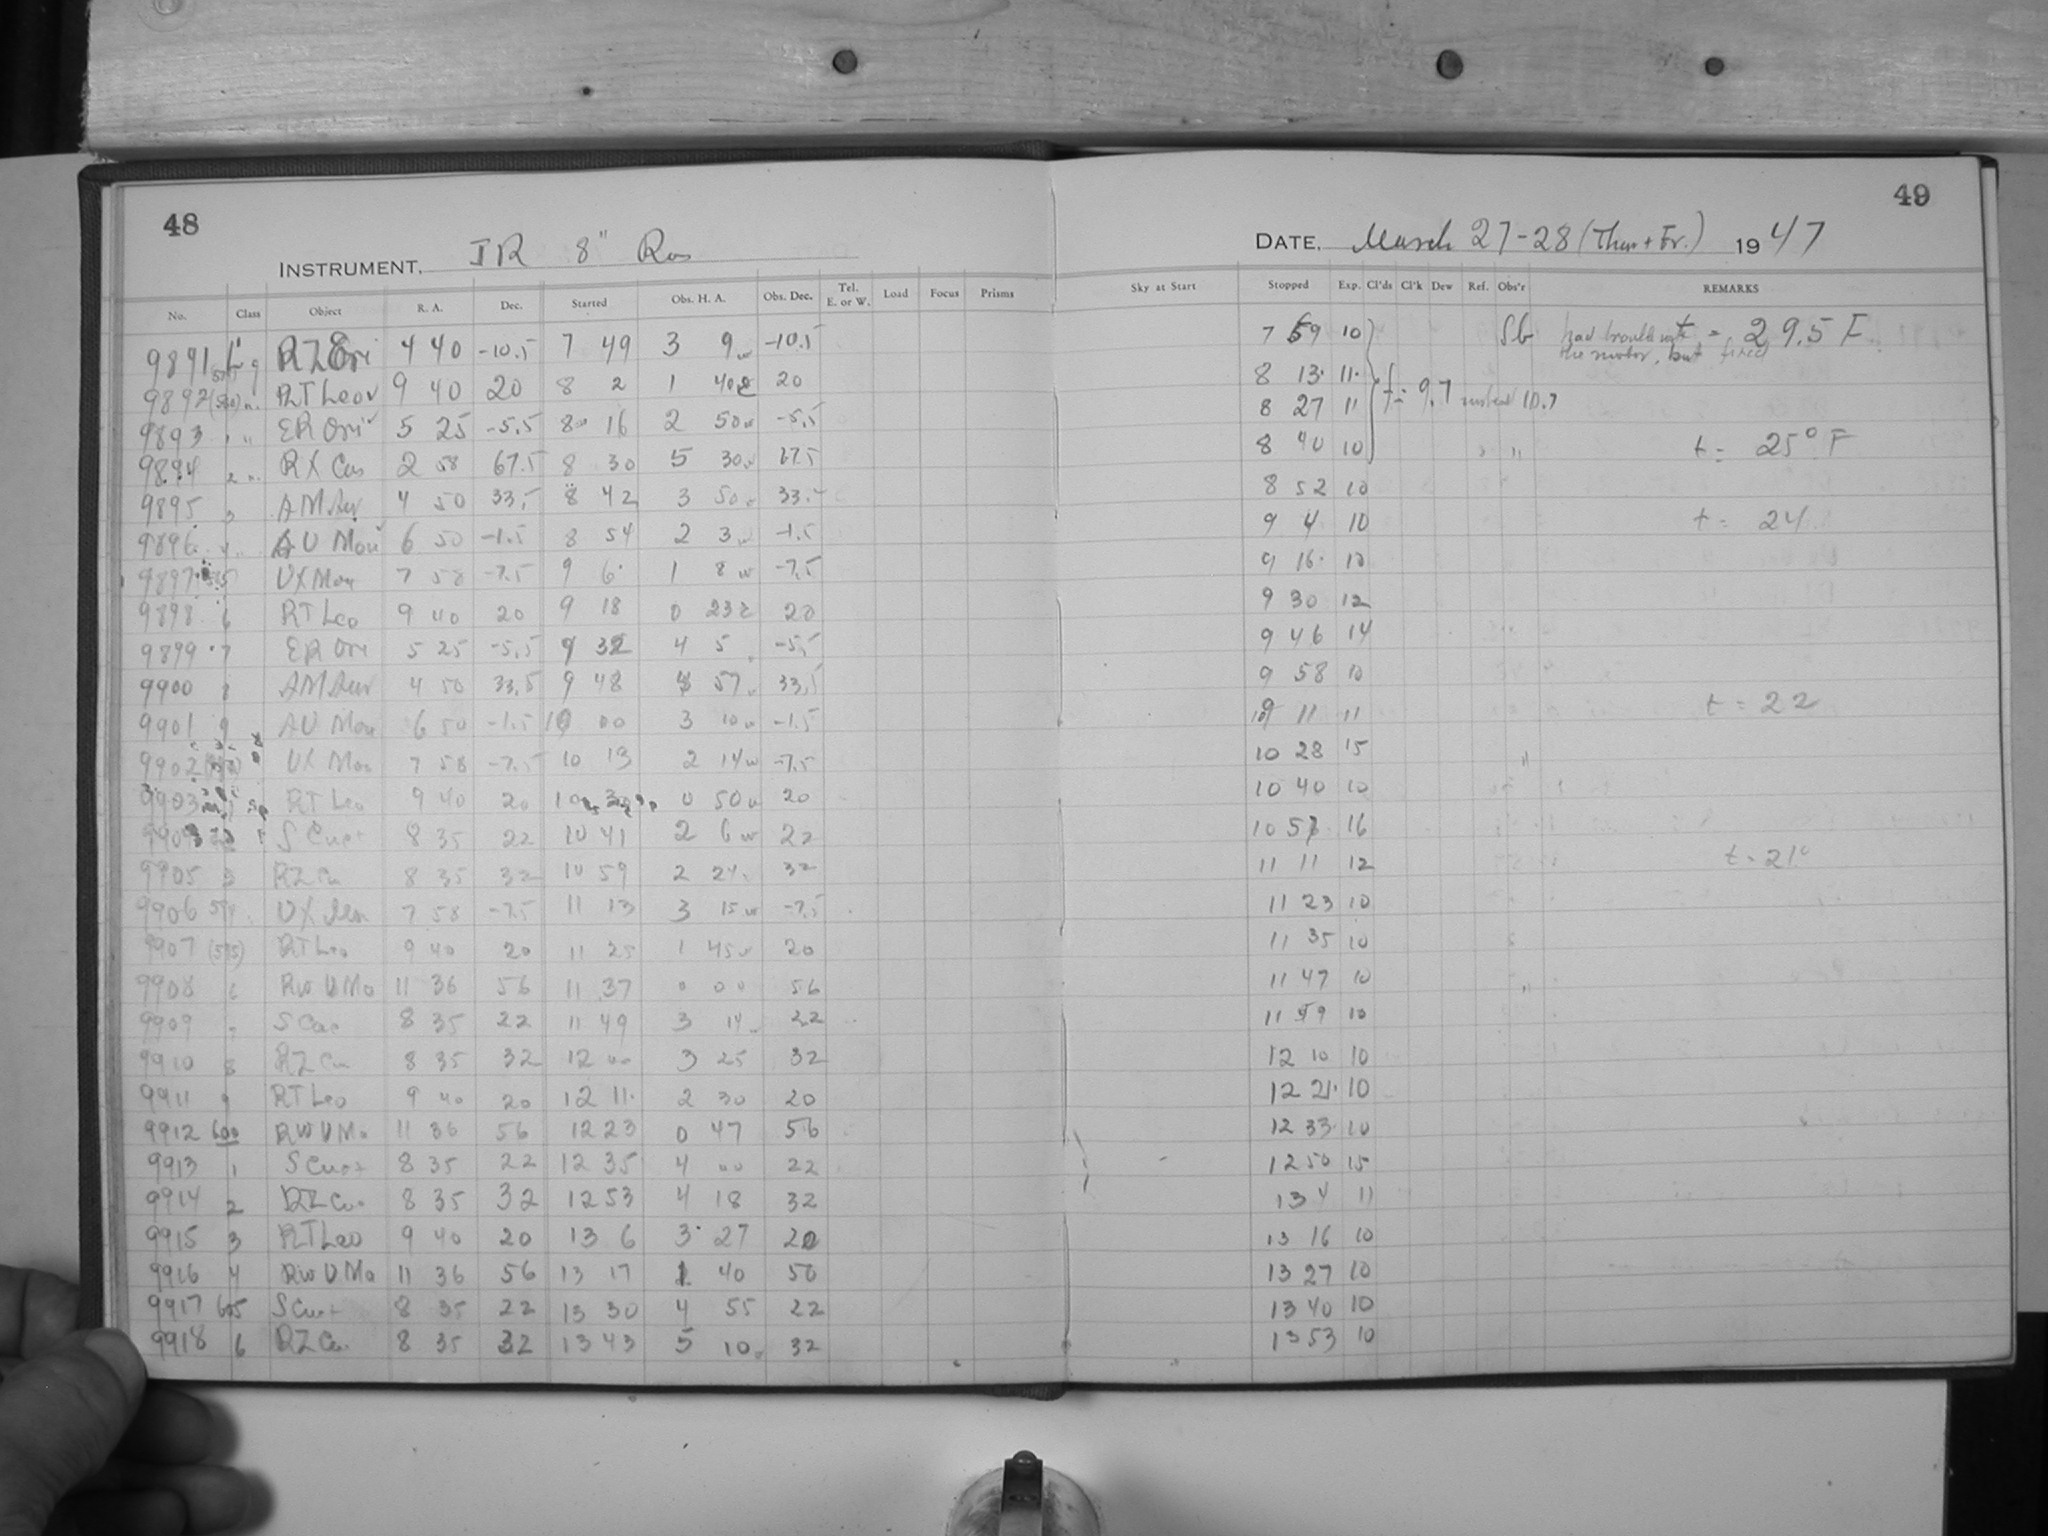 48
INSTRUMENT. IR 8" Ros
No. Class Object R. A. Dec. Started Obs. H. A. Obs. Dec. Tel. E. or W. Load Focus Prisms
9891 RZ Ori 4 40 -10.5 7 49 3 9w -10.5
9892 (580) RT Leo 9 40 20 8 2 1 40e 20
9893 ER Ori 5 25 -5.5 8 16 2 50w -5.5
9894 2 RX Cas 2 58 67.5 8 30 5 30w 67.5
9895 3 AM Aur 4 50 33.5 8 42 3 50 33.5
9896 AU Mon 6 50 -1.5 8 54 2 3w -1.5
9897 UX Mon 7 58 -7.5 9 6 1 8w -7.5
9898 6 RT Leo 9 40 20 9 18 0 23e 20
9899 7 ER Ori 5 25 -5.5 9 32 4 5 -5.5
9900 8 AM Aur 4 50 33.5 9 48 4 57 33.5
9901 9 AU Mon 6 50 -1.5 10 00 3 10w -1.5
9902 UX Mon 7 58 -7.5 10 13 2 14w -7.5
9903 RT Leo 9 40 20 10 30 0 50w 20
9904 S Cnc 8 35 22 10 41 2 6w 22
9905 3 RZ Cn 8 35 32 10 59 2 24 32
9906 UX Mon 7 58 -7.5 11 13 3 15w -7.5
9907 (595) RT Leo 9 40 20 11 25 1 45w 20
9908 6 RW UMa 11 36 56 11 37 0 00 56
9909 S Cnc 8 35 22 11 49 3 14 22
9910 8 RZ Cn 8 35 32 12 00 3 25 32
9911 9 RT Leo 9 40 20 12 11 2 30 20
9912 600 RW UMa 11 36 56 12 23 0 47 56
9913 1 S Cnc 8 35 22 12 35 4 00 22
9914 2 RZ Cn 8 35 32 12 53 4 18 32
9915 3 RT Leo 9 40 20 13 6 3 27 20
9916 4 RW UMa 11 36 56 13 17 1 40 56
9917 605 S Cnc 8 35 22 13 30 4 55 22
9918 6 RZ Cn 8 35 32 13 43 5 10 32
49
DATE. March 27-28 (Thur + Fr.) 1947
Sky at Start Stopped Exp. Cl'ds Cl'k Dew Ref. Obs'r REMARKS
7 59 10 SG had trouble with t = 29.5 F
the motor, but fixed
8 13 11 f = 9.7 instead 10.7
8 27 11
8 40 10 " t = 25° F
8 52 10
9 4 10 t = 24
9 16 10
9 30 12
9 46 14
9 58 10
10 11 11 t = 22
10 28 15 "
10 40 10
10 57 16
11 11 12 t = 21°
11 23 10
11 35 10
11 47 10 "
11 59 10
12 10 10
12 21 10
12 33 10
12 50 15
13 4 11
13 16 10
13 27 10
13 40 10
13 53 10